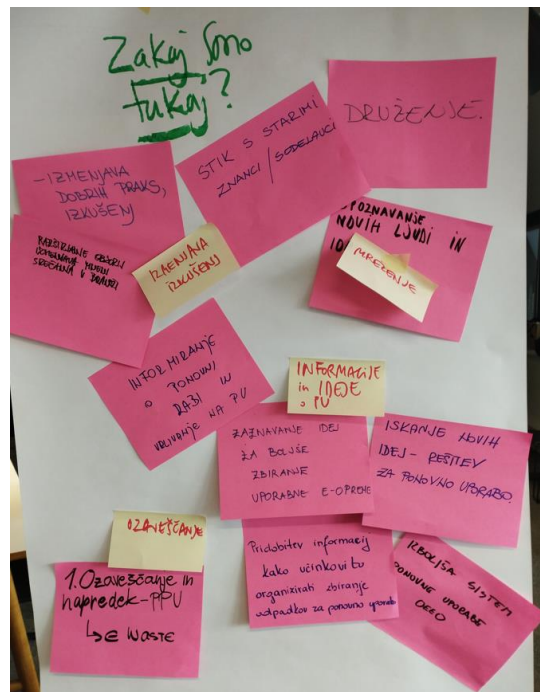 Zakaj smo
tukaj?
DRUŽENJE.
STIK S STARIMI
ZNANCI / SODELAVCI
-IZMENJAVA
DOBRIH PRAKS,
IZKUŠENJ
OBZORIJ
IZMENJAVA
IZKUŠENJ
NOVIH LJUDI IN
MREŽENJE
INFORMIRANJE
O PONOVNI
RABI IN
VPLIVANJE NA PU
INFORMACIJE
in IDEJE
o PU
ZAZNAVANJE IDEJ
ZA BOLJŠE
ZBIRANJE
UPORABNE E-OPREME
ISKANJE NOVIH
IDEJ - REŠITEV
ZA PONOVNO UPORABO.
OZAVEŠČANJE
1. Ozaveščanje in
napredek-PPU
↳ e WASTE
Pridobitev informacij
kako učinkovito
organizirati zbiranje
odpadkov za ponovno uporabo
SISTEM
PONOVNE UPORABE
OEEO